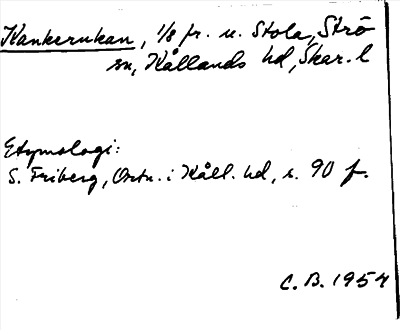 Kankerukan, 1/8 fr. u. Stola, Strö
sn, Kållands hd, Skar. l
Etymologi:
S. Friberg, Ortn. i Kåll. hd, s. 90 f.
C.B. 1954